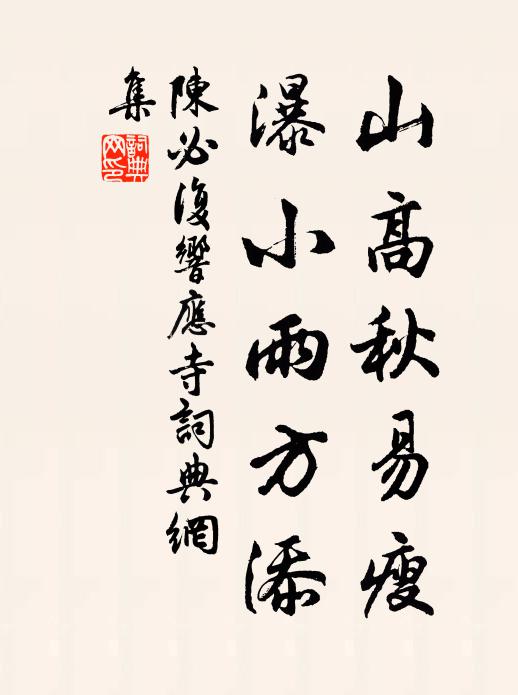 山高秋易瘦
瀑小雨方添
陳必復響應寺詞典網
集
詞典
網印